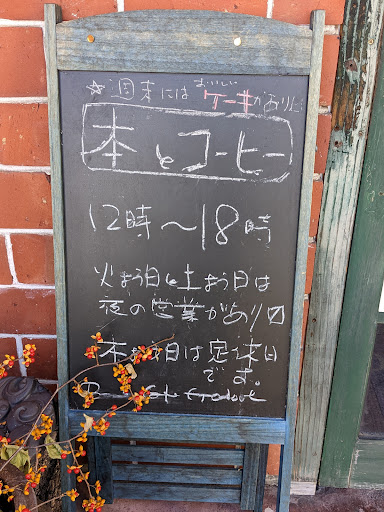 ☆週末には おいしい ケーキがあります
本とコーヒー
12時〜18時
火よう日と土よう日は
夜の営業があり
木よう日は定休日
です。